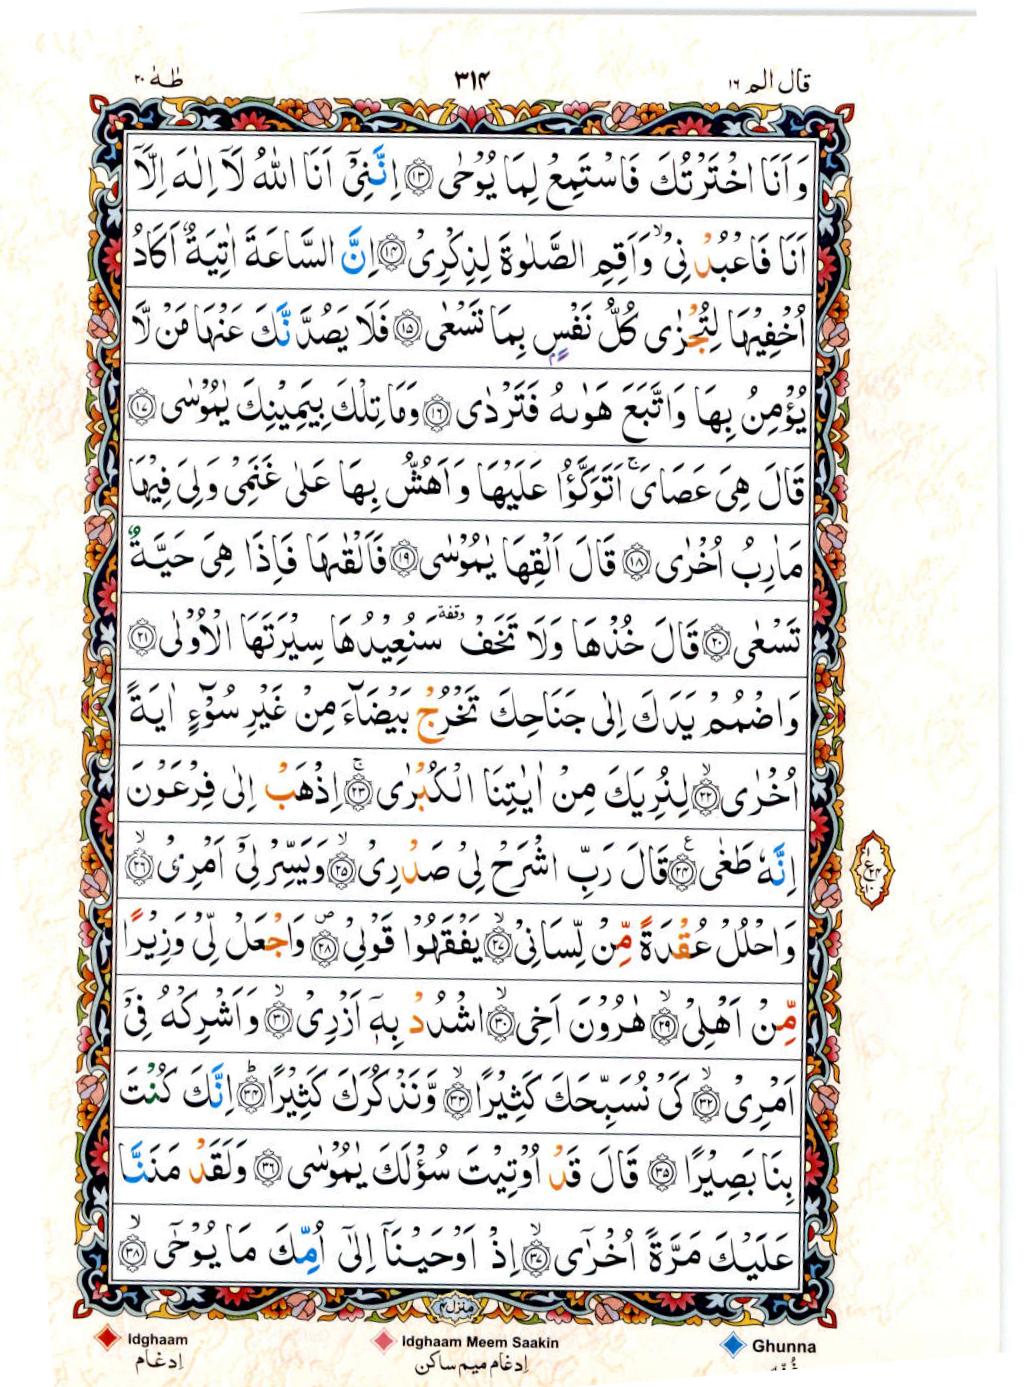 قال الم ١٦ ٣١۴ طٰهٰ ٢٠
وَاَنَا اخْتَرْتُكَ فَاسْتَمِعْ لِمَا يُوْحٰى ۝١٣ اِنَّنِيْٓ اَنَا اللّٰهُ لَآ اِلٰهَ اِلَّآ
اَنَا فَاعْبُدْنِيْ ۙ وَاَقِمِ الصَّلٰوةَ لِذِكْرِيْ ۝١۴ اِنَّ السَّاعَةَ اٰتِيَةٌ اَكَادُ
اُخْفِيْهَا لِتُجْزٰى كُلُّ نَفْسٍۭ بِمَا تَسْعٰى ۝١٥ فَلَا يَصُدَّنَّكَ عَنْهَا مَنْ لَّا
يُؤْمِنُ بِهَا وَاتَّبَعَ هَوٰىهُ فَتَرْدٰى ۝١٦ وَمَا تِلْكَ بِيَمِيْنِكَ يٰمُوْسٰى ۝١٧
قَالَ هِيَ عَصَايَ ۚ اَتَوَكَّؤُا عَلَيْهَا وَاَهُشُّ بِهَا عَلٰى غَنَمِيْ وَلِيَ فِيْهَا
مَاٰرِبُ اُخْرٰى ۝١٨ قَالَ اَلْقِهَا يٰمُوْسٰى ۝١٩ فَاَلْقٰىهَا فَاِذَا هِيَ حَيَّةٌ
تَسْعٰى ۝٢٠ قَالَ خُذْهَا وَلَا تَخَفْ وقفة سَنُعِيْدُهَا سِيْرَتَهَا الْاُوْلٰى ۝٢١
وَاضْمُمْ يَدَكَ اِلٰى جَنَاحِكَ تَخْرُجْ بَيْضَآءَ مِنْ غَيْرِ سُوْٓءٍ اٰيَةً
اُخْرٰى ۙ۝٢٢ لِنُرِيَكَ مِنْ اٰيٰتِنَا الْكُبْرٰى ۚ۝٢٣ اِذْهَبْ اِلٰى فِرْعَوْنَ
اِنَّهٗ طَغٰى ۝٢۴ ع قَالَ رَبِّ اشْرَحْ لِيْ صَدْرِيْ ۙ۝٢٥ وَيَسِّرْ لِيْٓ اَمْرِيْ ۙ۝٢٦
وَاحْلُلْ عُقْدَةً مِّنْ لِّسَانِيْ ۙ۝٢٧ يَفْقَهُوْا قَوْلِيْ ۪۝٢٨ وَاجْعَلْ لِّيْ وَزِيْرًا
مِّنْ اَهْلِيْ ۙ۝٢٩ هٰرُوْنَ اَخِي ۙ۝٣٠ اشْدُدْ بِهٖٓ اَزْرِيْ ۙ۝٣١ وَاَشْرِكْهُ فِيْٓ
اَمْرِيْ ۙ۝٣٢ كَيْ نُسَبِّحَكَ كَثِيْرًا ۙ۝٣٣ وَّنَذْكُرَكَ كَثِيْرًا ؕ۝٣۴ اِنَّكَ كُنْتَ
بِنَا بَصِيْرًا ۝٣٥ قَالَ قَدْ اُوْتِيْتَ سُؤْلَكَ يٰمُوْسٰى ۝٣٦ وَلَقَدْ مَنَنَّا
عَلَيْكَ مَرَّةً اُخْرٰٓى ۙ۝٣٧ اِذْ اَوْحَيْنَآ اِلٰٓى اُمِّكَ مَا يُوْحٰٓى ۙ۝٣٨
١
ع
٢۴
١٠
منزل۴
Idghaam Idghaam Meem Saakin Ghunna
اِدغام اِدغام میم ساکن